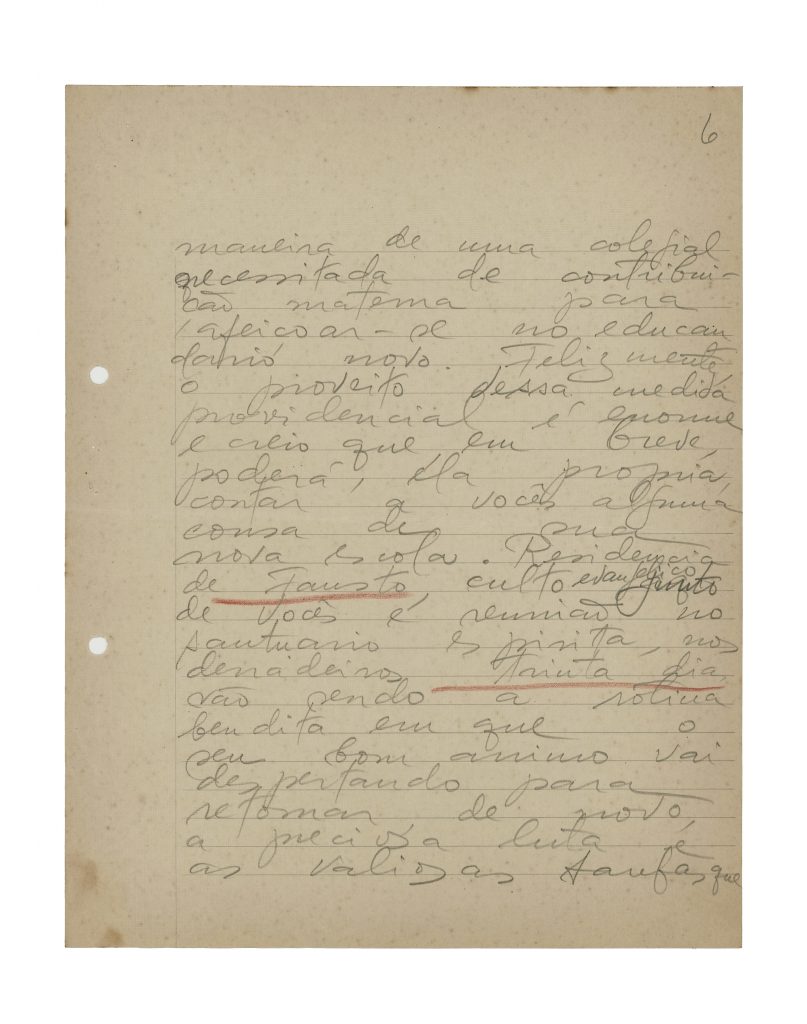 6
maneira de uma colegial
necessitada de contribui-
ção materna para
afeiçoar-se no educan
dario novo. Felizmente,
o proveito dessa medida
providencial é enorme
e creio que em breve,
poderá, ela propria,
contar a vocês alguma
cousa de sua
nova escola. Residencia
de Fausto, culto evangelico junto
de vocês e reunião no
santuario espirita, nos
derradeiros trinta dia,
vão sendo a rotina
bendita em que o
seu bom animo vai
despertando para
retomar de novo,
a preciosa luta e
as valiosas tarefas que